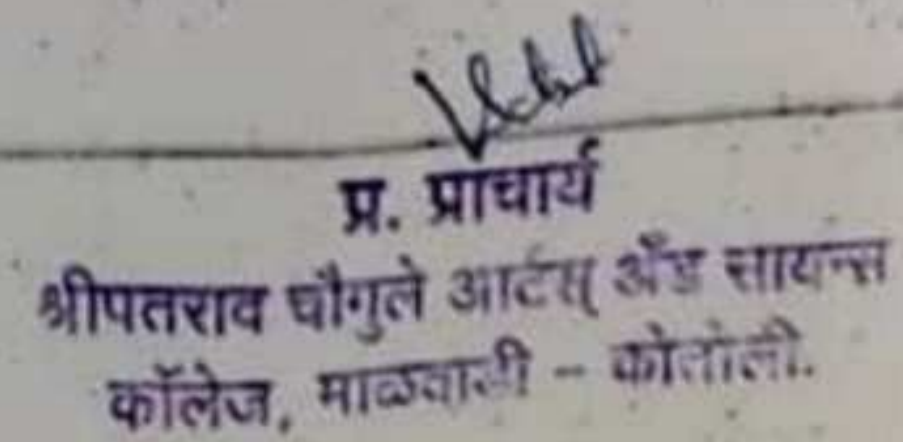 प्र. प्राचार्य
श्रीपतराव चौगुले आर्टस् अँड सायन्स
कॉलेज, माळवाडी - कोतोली.